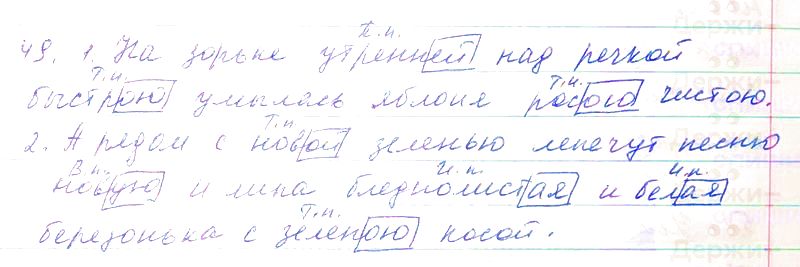 П.п.
49. 1. На зорьке утренней над речкой
Т.п. Т.п.
быстрою умылась яблоня росою чистою.
Т.п.
2. А рядом с новой зеленью лепечут песню
В.п. И.п. И.п.
новую и липа бледнолистая и белая
Т.п.
березонька с зеленою косой.